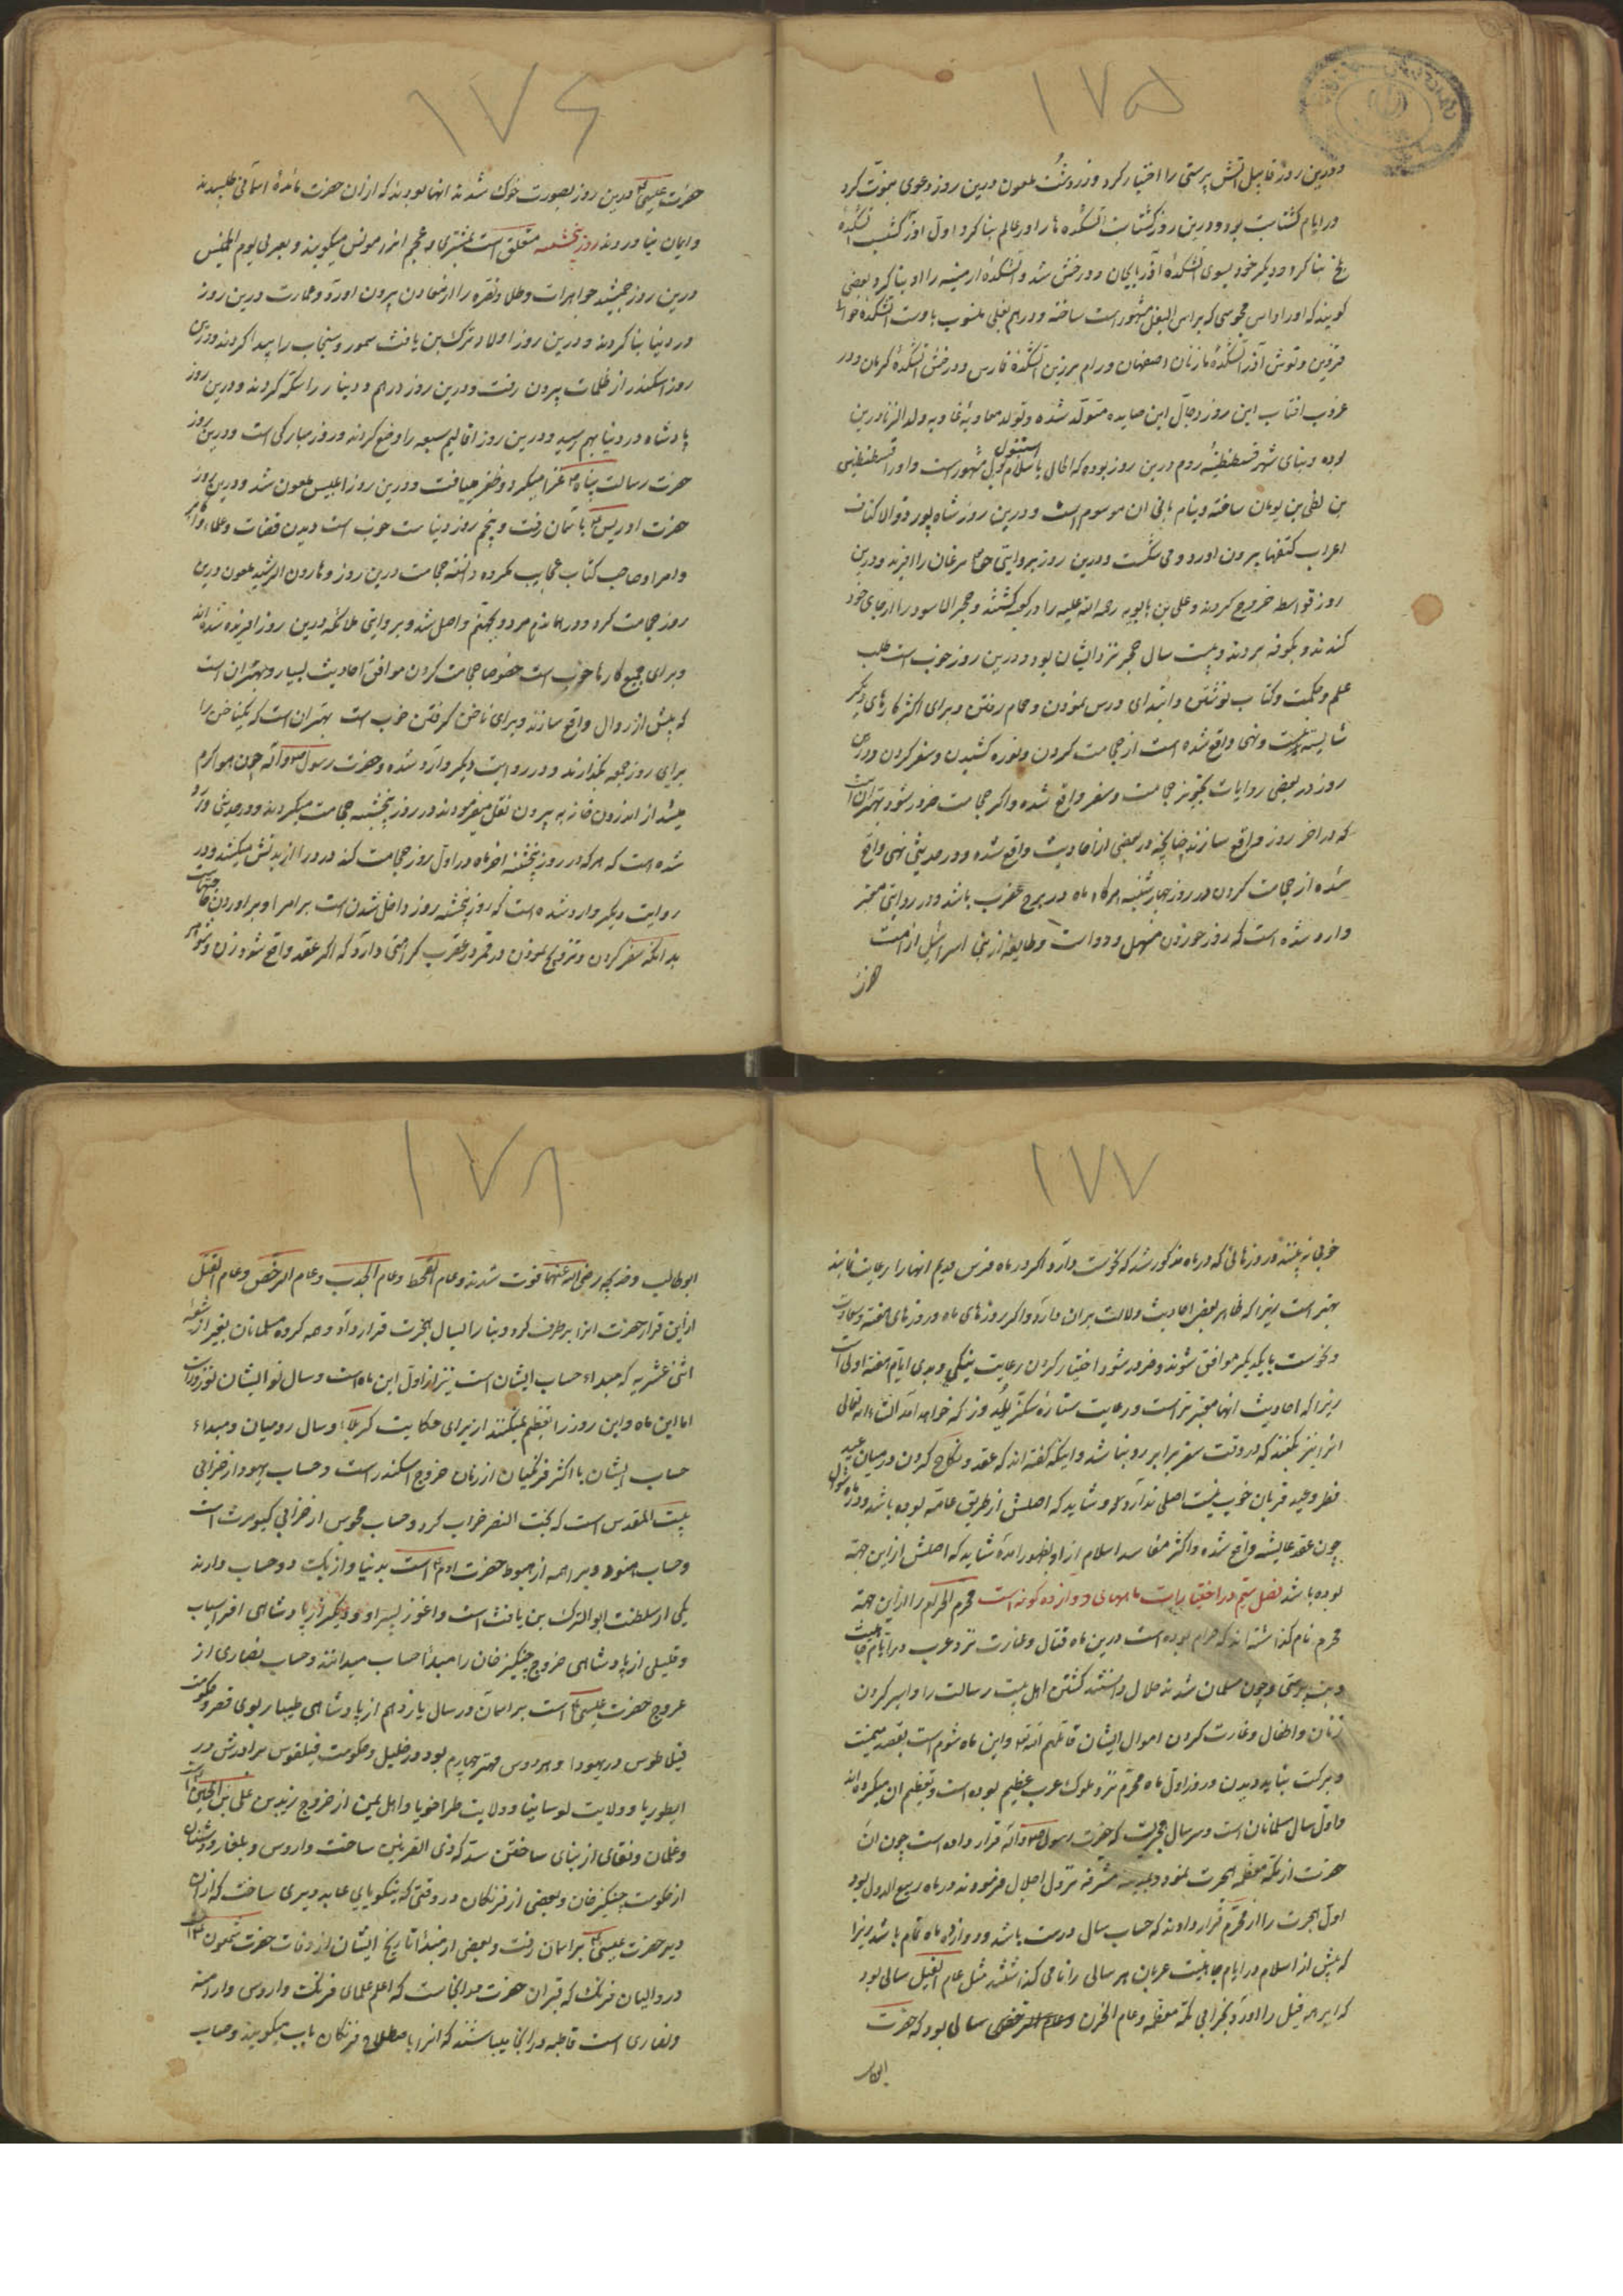 ١٧٥
ودرین روز قابیل آتش پرستی را اختیار کرد و زردشت ملعون درین روز دعوی نبوت کرد
در ایام گشتاسب بود و درین روز گشتاسب آتشکده ها را در عالم بنا کرد اول آذر گشسب آتشکدهٔ
بلخ بنا کرد و دیگر خود بسوی آتشکدهٔ آذربایجان و درخش شد و آتشکدهٔ ارمینیه را او بنا کرد و بعضی
گویند که او را داس مجوسی که براس البغل مشهور است ساخته و دراهم بغلی منسوب باوست آتشکدهٔ
قزوین و نوش آذر آتشکدهٔ اصفهان و رام برزین آتشکدهٔ فارس و درخش آتشکدهٔ کرمان و در
غروب آفتاب این روز دجال ابن صایده متولد شده و تولد معاویه ولد الزنا درین
بوده و بنای شهر قسطنطنیهٔ روم درین روز بوده که الحال باسلام بول استنبول مشهور است و او را قسطنطین
بن بن یونان ساخته و بنام بانی آن موسوم است و درین روز شاه پور ذو الاکتاف
اعراب کتفها بیرون آورد و می شکست و درین روز بروایتی حق مرغان را آفرید و درین
روز قرامطه خروج کردند و علی بن بابویه رحمه الله علیه را در کعبه کشتند و حجر الاسود را از جای خود
کندند و بکوفه بردند و بیست سال حجر نزد ایشان بود و درین روز خوب است طلب
علم و حکمت و کتاب نوشتن و ابتدای درس نمودن و حمام رفتن و برای اکثر کارهای دیگر
شایسته نیست و نهی واقع شده است از حجامت کردن و نوره کشیدن و سفر کردن و درین
روز در بعضی روایات تجویز حجامت و سفر واقع شده و اگر حجامت ضرور شود بهتر آن است
که در آخر روز واقع سازند چنانچه در بعضی از احادیث واقع شده و در حدیثی نهی واقع
شده از حجامت کردن در روز چهار شنبه هرگاه ماه در برج عقرب باشد و در روایتی معتبر
وارد شده است که روز خوردن مسهل و دواست و طایفهٔ از بنی اسرائیل از امت
حضرت
١٧٦
حضرت عیسی ع درین روز بصورت خوک شدند آنها بودند که از آن حضرت مائدهٔ آسمانی طلبیدند
و ایمان نیاوردند روز پنجشنبه متعلق است بمشتری و عجم آنرا مونس میگویند و بعربی یوم الخمیس
درین روز جمشید جواهرات و طلا و نقره را از معادن بیرون آورد و عمارت درین روز
در دنیا بنا کردند و درین روز اولاد ترک بن یافث سمور و سنجاب را پیدا کردند و درین
روز اسکندر از ظلمات بیرون رفت و درین روز درهم و دینار را سکه کردند و درین روز
پادشاه در دنیا بهم رسید و درین روز اقالیم سبعه را وضع کردند و روز مبارکی است و درین روز
حضرت رسالت پناه ص غزا میکرد و ظفر مییافت و درین روز ابلیس ملعون شد و درین روز
حضرت ادریس ع بآسمان رفت و پنجم روز دنیاست خوب است دیدن قضات و علماء و اکابر
و امرا و صاحب کتاب عجایب مکروه دانسته حجامت درین روز و هارون الرشید ملعون درین
روز حجامت کرد و در همانروز مرد و بجهنم واصل شد و بروایتی ملائکه درین روز آفریده شده اند
و برای جمیع کارها خوب است خصوصا حجامت کردن موافق احادیث بسیار و بهتر آن است
که پیش از زوال واقع سازند و برای ناخن گرفتن خوب است بهتر آن است که یکناخن را
برای روز جمعه بگذارند و در روایت دیگر وارد شده و حضرت رسول ص و آله چون هوا گرم
میشد از اندرون خانه به بیرون نقل میفرمودند در روز پنجشنبه حجامت میکردند و در حدیثی وارد
شده است که هر که در روز پنجشنبه آخر ماه در اول روز حجامت کند درد را از بدنش میکشد و در
روایت دیگر وارد شده است که روز پنجشنبه روز داخل شدن است بر امرا و برآوردن حاجتهاست
بدانکه سفر کردن و تزویج نمودن در قمر در عقرب کراهتی دارد که اگر عقد واقع شود زن و شوهر
١٧٧
خوبی نه بینند و روزهائی که در ماه مذکور شد که نحوست دارد اگر در ماه فرس قدیم آنها را رعایت نمایند
بهتر است زیرا که ظاهر بعض احادیث دلالت بر آن دارد و اگر روزهای ماه و روزهای هفته و سعادت
و نحوست با یکدیگر موافق نشوند و ضرور شود اختیار کردن رعایت نیکی و بدی ایام هفته اولی است
زیرا که احادیث آنها معتبرتر است و رعایت ستارهٔ سکز یلدوز که خواهد آمد انشاءالله تعالی
آنرا نیز بکنند که در وقت سفر برابر رو نباشد و اینکه گفته اند که عقد و نکاح کردن در میان عید
فطر و عید قربان خوب نیست اصلی ندارد و شاید که اصلش از طریق عامه بوده باشد و در ماه شوال
چون عقد عایشه واقع شده و اکثر مفاسد اسلام از او بظهور آمده شاید که اصلش از این جهة
بوده باشد فصل ششم در اختیارات ماههای دوازده گونه است محرم الحرام را از این جهة
محرم نام گذاشته اند که حرام بوده است درین ماه قتال و غارت نزد عرب در ایام جاهلیت
و بت پرستی و چون مسلمان شدند حلال دانستند کشتن اهل بیت رسالت را و اسیر کردن
زنان و اطفال و غارت کردن اموال ایشان قاتلهم الله و این ماه شوم است بقصد میمنت
و برکت نباید دیدن و روز اول ماه محرم نزد ملوک عرب عظیم بوده است و تعظیم آن میکرده اند
و اول سال مسلمانان است و سر سال هجریست که حضرت رسول ص و آله قرار داده است چون آن
حضرت از مکه معظمه هجرت نمود و بمدینه مشرفه نزول اجلال فرمودند در ماه ربیع الاول بود
اول هجرت را از محرم قرار دادند که حساب سال درست باشد و دوازده ماه تمام باشد زیرا
که پیش از اسلام در ایام جاهلیت عربان هر سالی را نامی گذاشتند مثل عام الفیل سالی بود
که ابرهه فیل را آورد بخرابی مکه معظمه و عام الحزن سالی بود که حضرت
ابوطالب
١٧٨
ابوطالب و خدیجه رضی الله عنهما فوت شدند و عام القحط و عام الجدب و عام الرخص و عام الفیل
ازین قرار حضرت آنرا برطرف کرد و بنا را بسال هجرت قرار داد و همه گروه مسلمانان بغیر از شیعه
اثنی عشریه که مبداء حساب ایشان است نیز از اول این ماه است و سال نو ایشان نوروز است
اما این ماه و این روز را تعظیم نمیکنند از برای حکایت کربلا و سال رومیان و مبداء
حساب ایشان با اکثر فرنگیان از زمان خروج اسکندر است و حساب یهود از خرابی
بیت المقدس است که بخت النصر خراب کرد و حساب مجوس از خرابی کیومرث است
و حساب هنود و براهمه از هبوط حضرت آدم ع است بدنیا و از یکت دو حساب دارند
یکی از سلطنت ابو الترک بن یافث است و اغوز پسر او و دیگر از پادشاهی افراسیاب
و قلیلی از پادشاهی خروج چنگیز خان را مبدأ حساب میدانند و حساب نصاری از
عروج حضرت عیسی ع است بر آسمان در سال یازدهم از پادشاهی طیباریوس قیصر و حکومت
فیلاطوس در یهودا و هیرودس مهتر چهارم بود در جلیل و حکومت فیلفوس برادرش در
ایطوریا و ولایت لوسانیا و ولایت طراخونیا و اهل یمن از خروج زید بن علی بن الحسین است
از حکومت چنگیز خان و بعضی از فرنگان در وقتی که نیکویای عابد دیری ساخت که از آن
دیر حضرت عیسی ع بر آسمان رفت و بعضی از مبدا تاریخ ایشان از وفات حضرت شمعون است
در والیان فرنگ که قبر آن حضرت در آنجاست که اعلم علمای فرنگ و اروس و ارامنه
و نصاری است قاطبه در آنجا میباشند که آنرا باصطلاح فرنگان پاپ میگویند و حساب